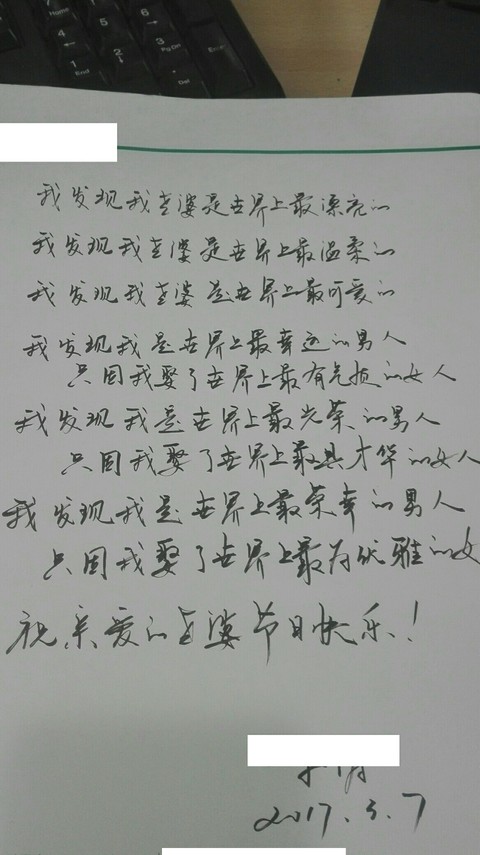 我发现我老婆是世界上最漂亮的
我发现我老婆是世界上最温柔的
我发现我老婆是世界上最可爱的
我发现我是世界上最幸运的男人
只因我娶了世界上最有气质的女人
我发现我是世界上最光荣的男人
只因我娶了世界上最具才华的女人
我发现我是世界上最荣幸的男人
只因我娶了世界上最为优雅的女
祝亲爱的老婆节日快乐!
2017.3.7